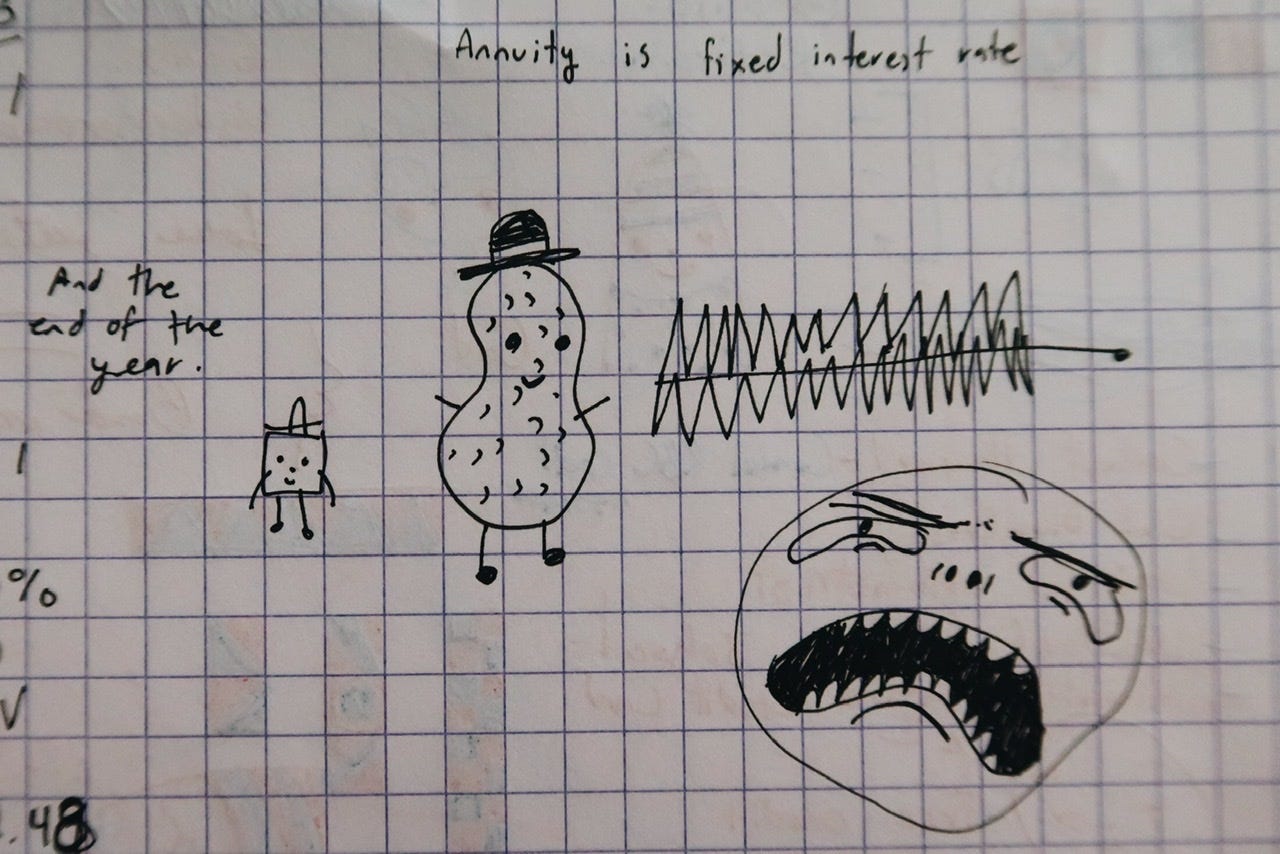 Annuity is fixed interest rate
And the
end of the
year.
1
1
%
V
.48